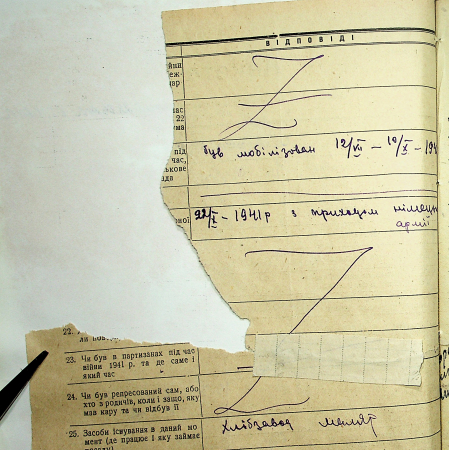 ВІДПОВІДІ
був мобілізован 12/VII – 10/X – 194
22/X – 1941 р з приходом німец
армії
22.
23. Чи був в партизанах під час
війни 1941 р. та де саме і
який час
24. Чи був репресований сам, або
хто з родичів, коли і защо, яку
мав кару та чи відбув її
25. Засоби існування в даний мо
мент (де працює і яку займає
Хлібзавод